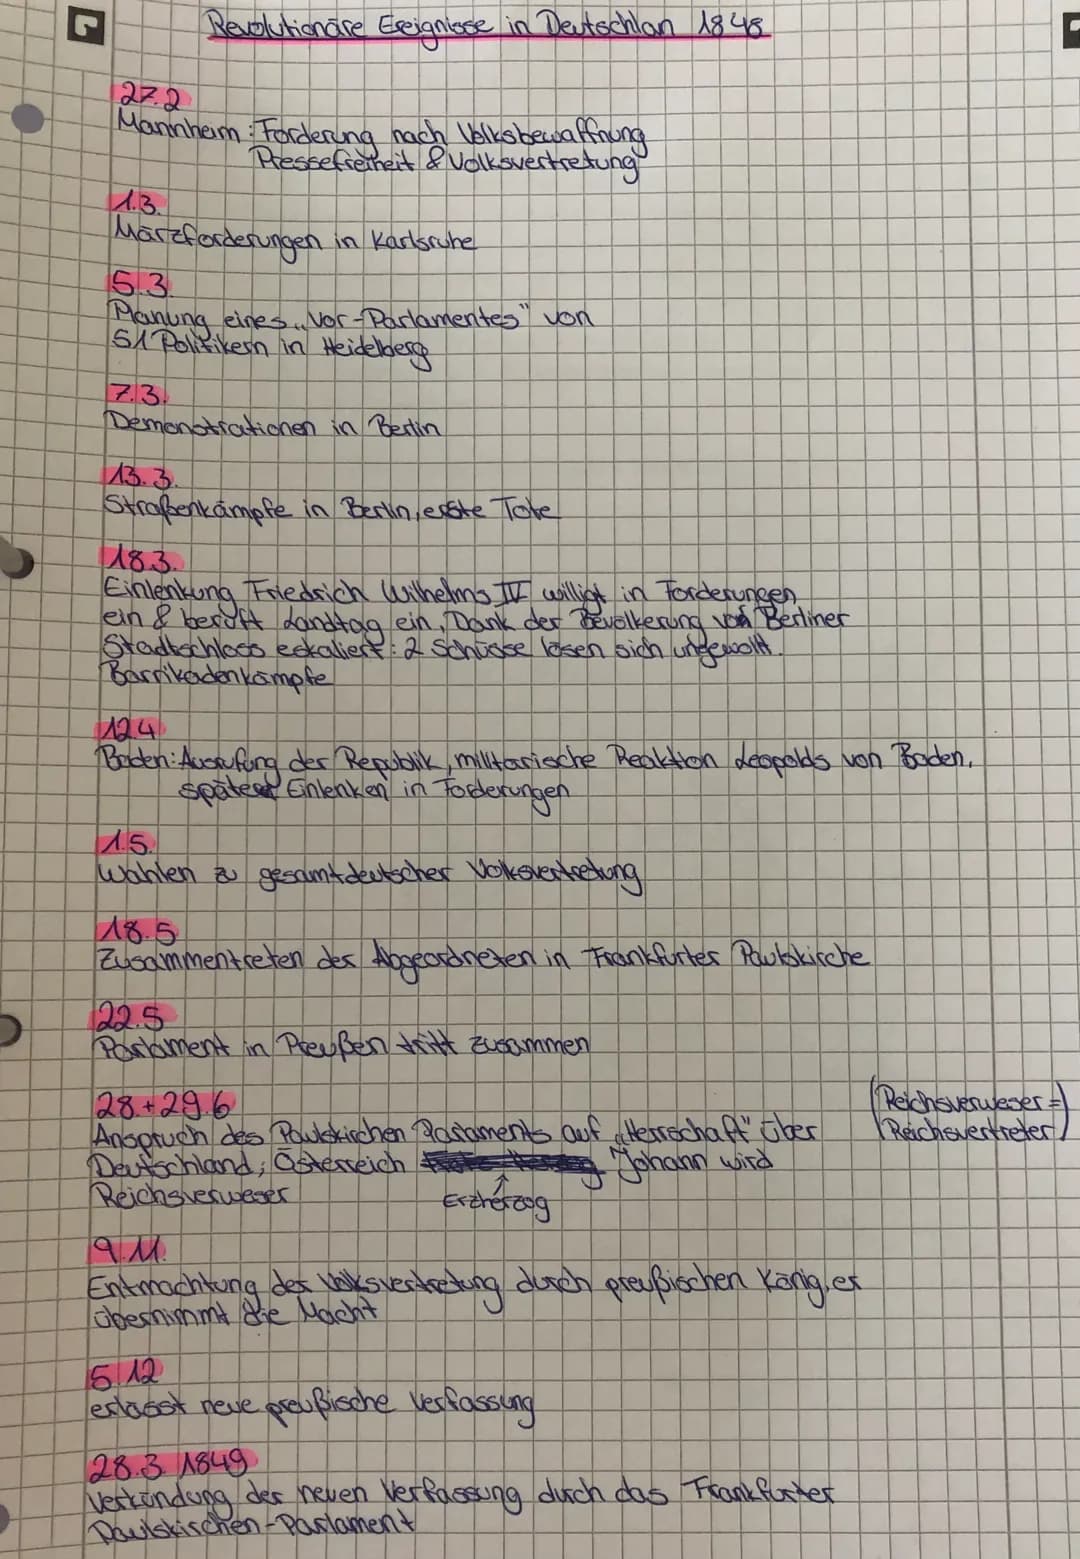 Revolutionäre Ereignisse in Deutschlan 1848
27.2
Mannheim: Forderung nach Volksbewaffnung
Pressefreiheit & Volksvertretung
1.3.
Märzforderungen in Karlsruhe
5.3.
Planung eines „Vor-Parlamentes" von
51 Politikern in Heidelberg
7.3.
Demonstrationen in Berlin
13.3.
Straßenkämpfe in Berlin, erste Tote
18.3.
Einlenkung Friedrich Wilhelms IV willigt in Forderungen
ein & beruft Landtag ein, Dank der Bevölkerung vor Berliner
Stadtschloss eskaliert: 2 Schüsse lösen sich ungewollt.
Barrikadenkämpfe
12.4
Baden: Ausrufung der Republik, militärische Reaktion Leopolds von Baden,
später Einlenken in Foderungen
1.5.
Wahlen zu gesamtdeutscher Volksvertretung
18.5
Zusammentreten der Abgeordneten in Frankfurter Paulskirche
22.5
Parlament in Preußen tritt zusammen
28.+29.6
(Reichsverweser =)
Reichsvertreter)
Anspruch des Paulskirchen Parlaments auf „Herrschaft" über
Deutschland; Österreich Johann wird
Reichsverweser
Erzherzog
9.11.
Entmachtung der Volksvertretung durch preußischen König, er
übernimmt die Macht
5.12
erlässt neue preußische Verfassung
28.3. 1849
Verkündung der neuen Verfassung durch das Frankfurter
Paulskirchen-Parlament